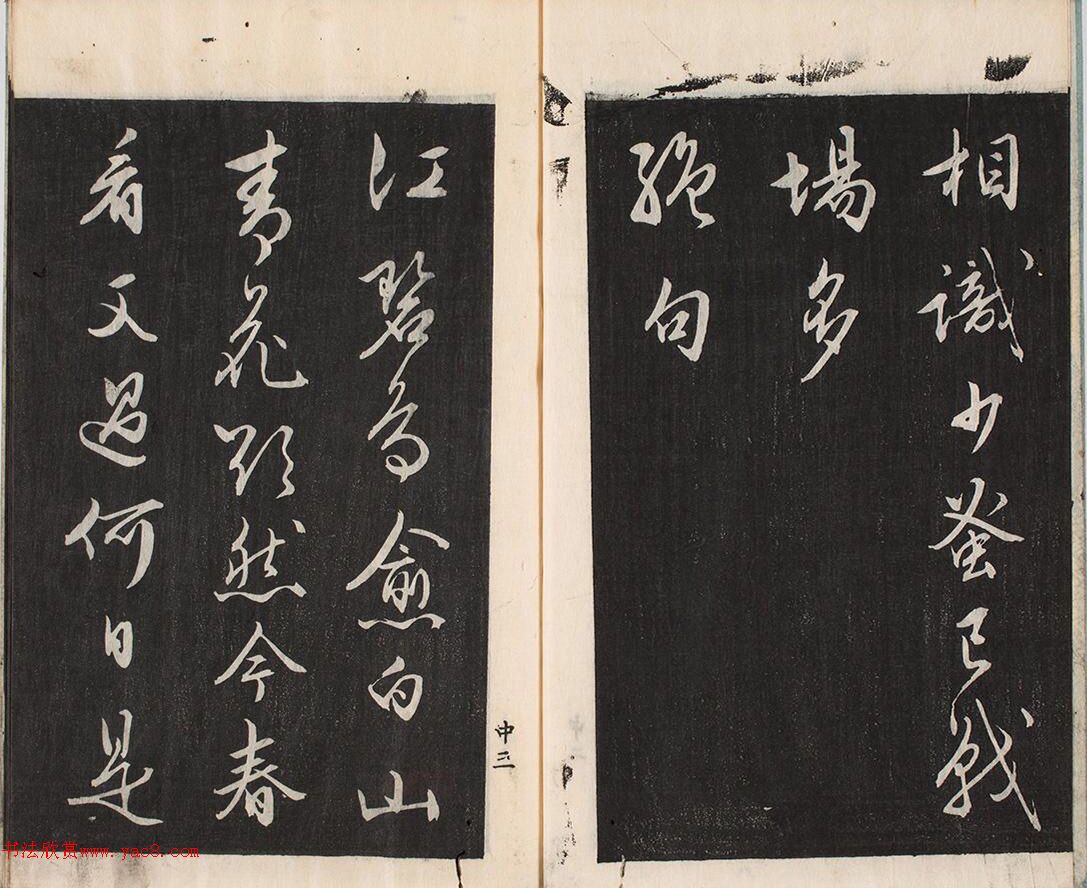 相識少蚤已戰
場多
絶句
江碧鳥愈白山
青花欲然今春
看又過何日是
中三
书法欣赏www.yac8.com